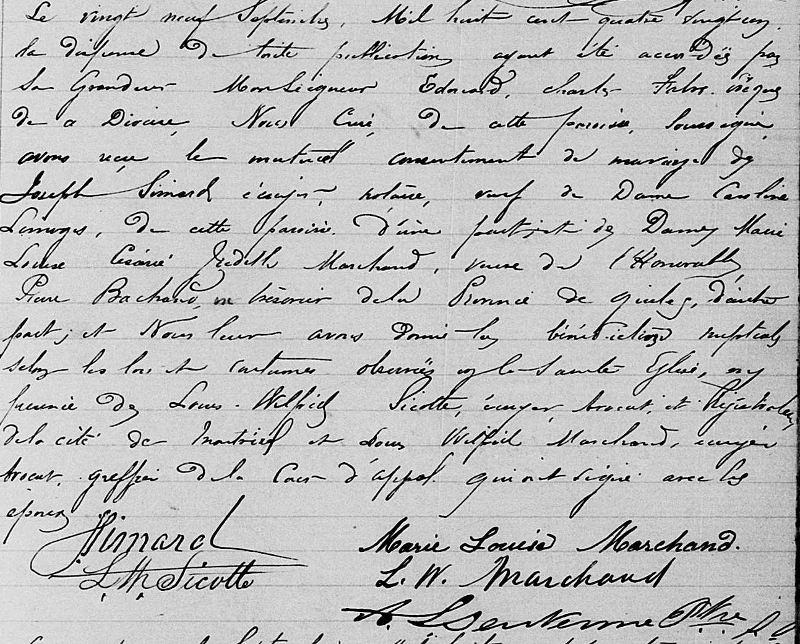 Le vingt neuf Septembre, Mil huit cent quatre vingt un,
la dispense de toute publication ayant été accordée par
Sa Grandeur Monseigneur Edouard, Charles Fabre, évêque
de ce Diocèse, Nous Curé, de cette paroisse, soussigné,
avons reçu le mutuel consentement de mariage de
Joseph Simard écuyer, notaire, veuf de Dame Caroline
Limoges, de cette paroisse d'une part, et de Dame Marie
Louise Césarée Judith Marchand, veuve de l'Honorable
Pierre Bachand, trésorier de la Province de Québec, d'autre
part; et Nous leur avons donné la bénédiction nuptiale
selon les lois et coutumes observées en la Sainte Eglise, en
présence de Louis-Wilfrid Sicotte, écuyer, avocat, et Régistrateur
de la cité de Montréal et Louis Wilfrid Marchand, écuyer
avocat, greffier de la Cour d'appel qui ont signé avec les
époux
Simard Marie Louise Marchand.
L. W. Sicotte L. W. Marchand
A. Ptre